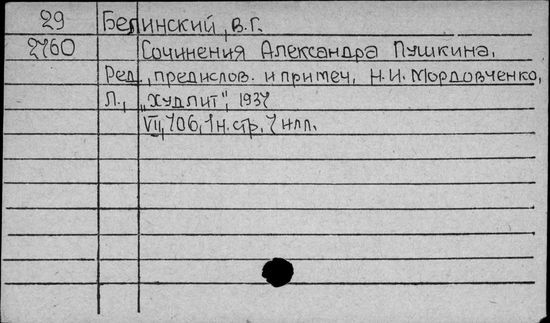 29 Белинский, В.Г.
2760 Сочинения Александра Пушкина.
Ред., предислов. и примеч. Н.И. Мордовченко,
Л., „Худлит", 1937
VII, 706, 1 н. стр. 7 илл.